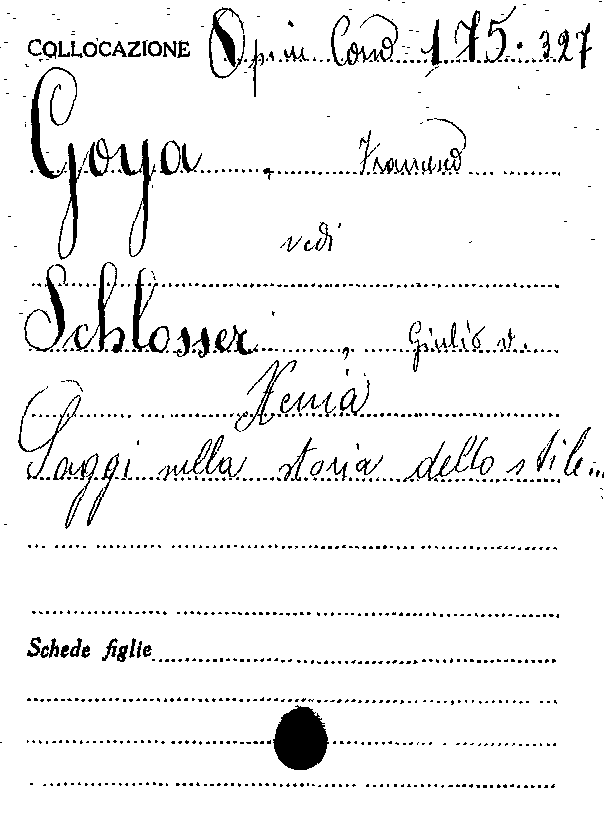 COLLOCAZIONE Opin Cond 175.327
Goya, Francesco
vedi
Schlosser, Giulio v.
Xenia
Saggi sulla storia dello stile...
Schede figlie